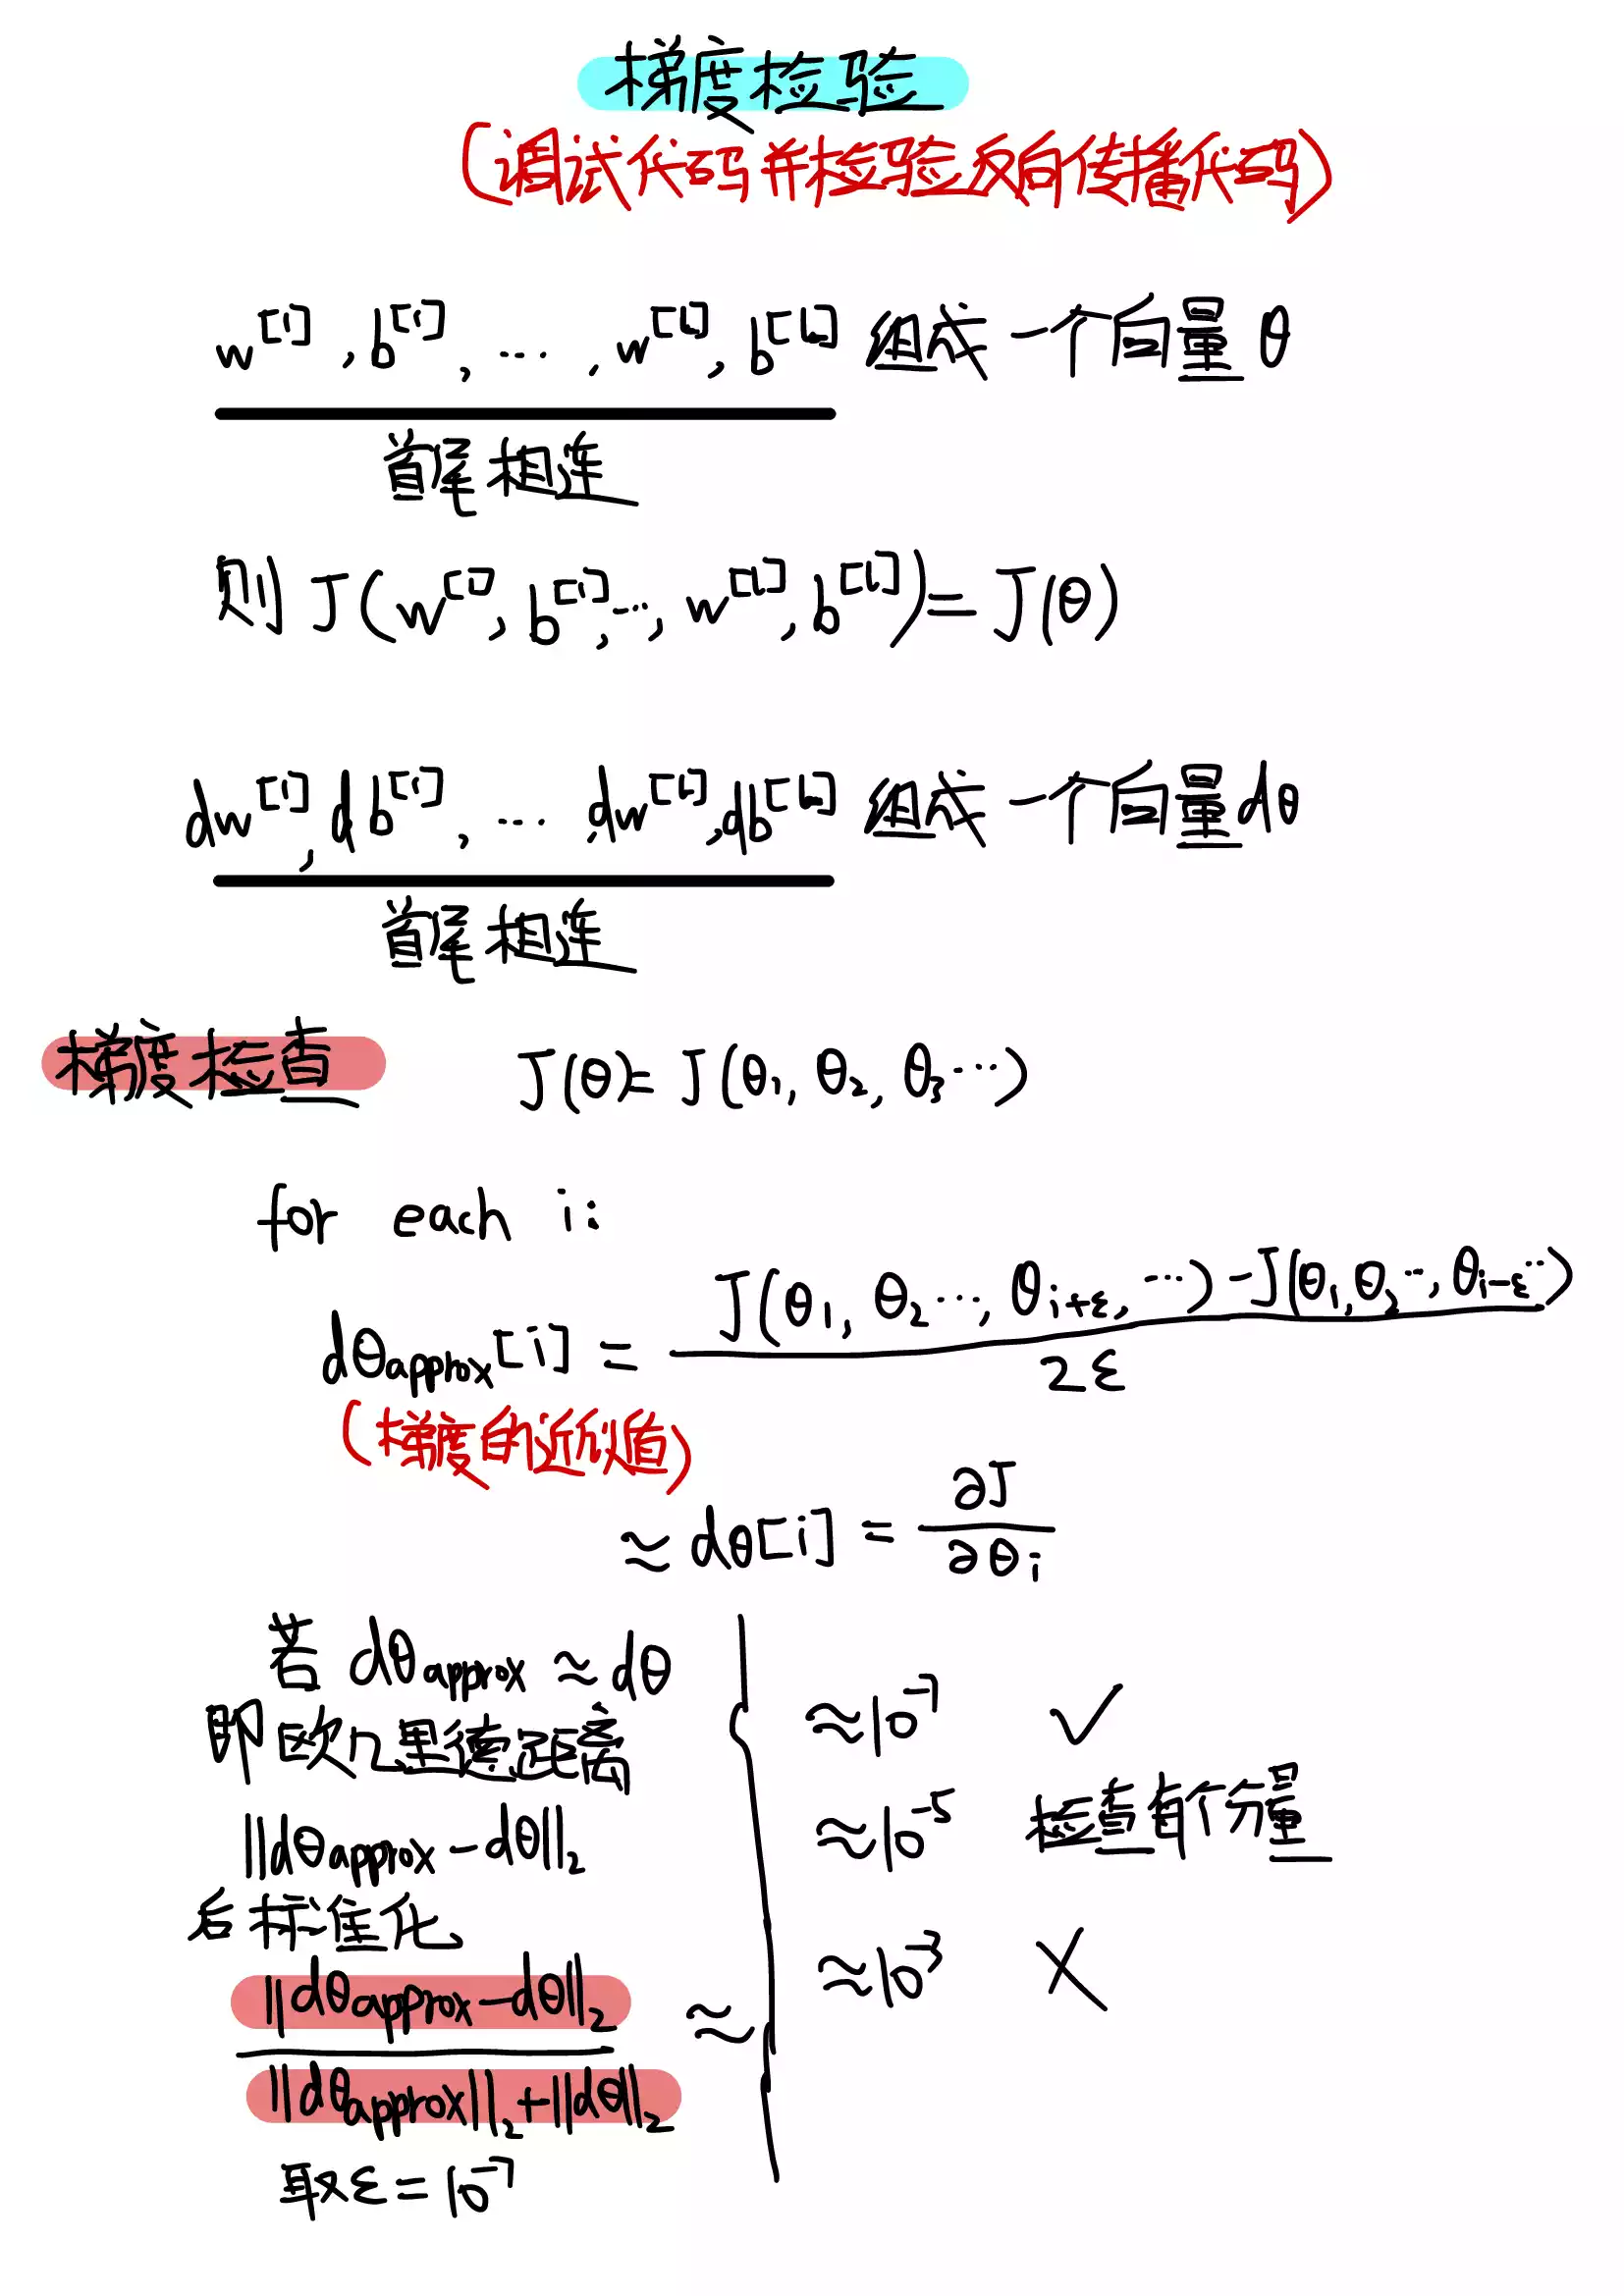 梯度检验
(调试代码并检验反向传播代码)
w^[1], b^[1], ..., w^[L], b^[L] 组成一个向量θ
首尾相连
则 J(w^[1], b^[1], ..., w^[L], b^[L]) = J(θ)
dw^[1], db^[1], ... dw^[L], db^[L] 组成一个向量dθ
首尾相连
梯度检查 J(θ) = J(θ₁, θ₂, θ₃ ...)
for each i:
dθapprox[i] = (J(θ₁, θ₂ ..., θ_{i+ε}, ...) - J(θ₁, θ₂ ..., θ_{i-ε} ...)) / 2ε
(梯度的近似值)
≈ dθ[i] = ∂J / ∂θᵢ
若 dθapprox ≈ dθ
即欧几里德距离
||dθapprox - dθ||₂
后标准化
||dθapprox - dθ||₂ / (||dθapprox||₂ + ||dθ||₂) ≈
取ε = 10⁻⁷
≈10⁻⁷ ✓
≈10⁻⁵ 检查每个分量
≈10⁻³ ╳